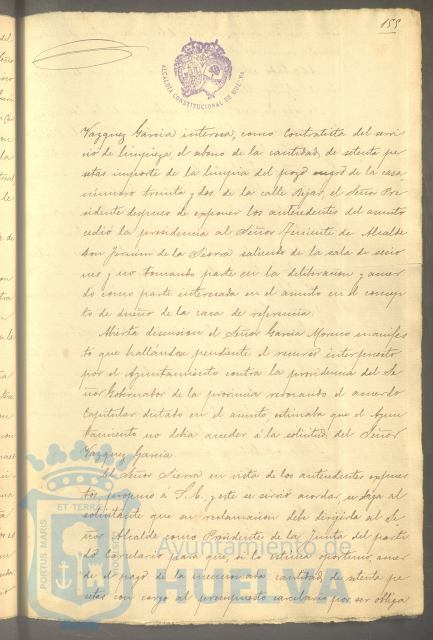 155
ALCALDÍA CONSTITUCIONAL DE HUELVA
Vazquez García interesa, como Contratista del servi
cio de limpieza, el abono de la cantidad, de setenta pe
setas importe de la limpia del pozo negro de la casa
número treinta y dos de la calle Bejar, el Señor Pre
sidente despues de exponer los antecedentes del asunto
cedió la presidencia al Señor Teniente de Alcalde
don de la Sierra saliendo de la sala de sesio
nes y no tomando parte en la deliberacion y acuer
do como parte interesada en el asunto en el concep
to de dueño de la casa de referencia.
Abierta discusion el Señor García Moreno manifes
tó que hallándose pendiente el recurso interpuesto
por el Ayuntamiento contra la providencia del Se
ñor Gobernador de la provincia revocando el acuerdo
Capitular dictado en el asunto, estimaba que el Ayun
tamiento no debia acceder á la solicitud del Señor
Vazquez García.
El Señor Sierra en vista de los antecedentes expues
tos, propuso á S.E. y este se sirvió acordar, se diga al
solicitante que su reclamacion debe dirigirla al Se
ñor Alcalde como Presidente de la Junta del parti
do Carcelario para que, si lo estima oportuno, acuer
de el pago de la mencionada cantidad, de setenta pe
setas con cargo al presupuesto carcelario por ser obliga
PORTUS MARIS ET TERRAE CUSTODIA
Ayuntamiento de
HUELVA